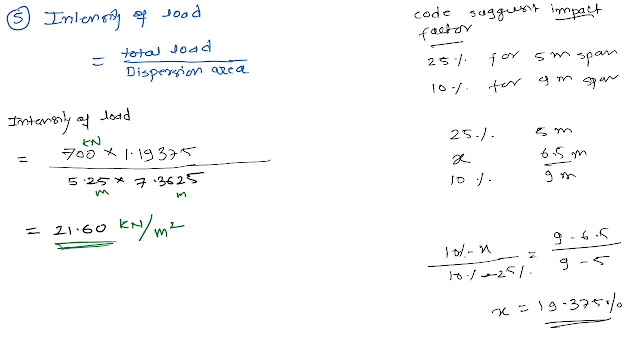 ⑤ Intensity of load
= total load
Dispersion area
Intensity of load
= 700 KN × 1.19375
5.25 m × 7.3625 m
= 21.60 KN/m²
code suggest impact
factor
25% for 5m span
10% for 9m span
25% 5m
x 6.5m
10% 9m
10%-x / 10%-25% = 9-6.5 / 9-5
x = 19.375%